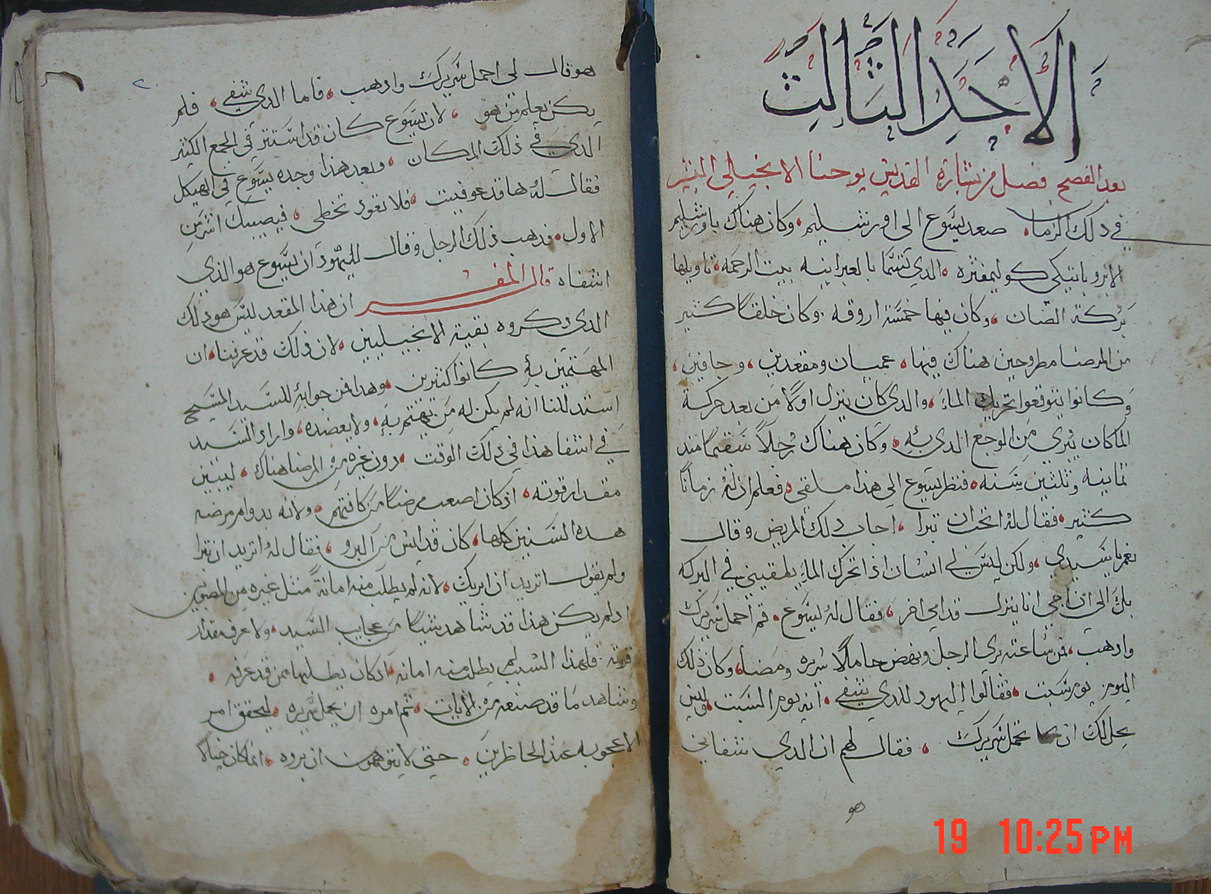 الاحد الثالث
بعد الفصح فصل من بشارة القديس يوحنا الانجيلي البشير
في ذلك الزمان صعد يسوع الى اورشليم وكان هناك باورشليم
الابروباتيكي كوليمفثره الدي تسما بالعبرانيه بيت الرحمه تاويلها
بركة الضان وكان فيها خمسة اروقه وكان خلقًا كثير
من المرضا مطروحين هناك فيها عميان ومقعدين وجافين
وكانوا يتوقعوا تحريك الماء والدي كان ينزل اولًا من بعد حركة
الماكان يبرى من الوجع الدي به وكان هناك رجلًا سقيمًا مند
تمانيه وثلثين سنه فنظر يسوع الى هذا ملقى فعلم ان له زمانًا
كثير فقال له اتحب ان تبرا اجاب دلك المريض وقال
نعم ياسيدي ولكن ليس لي انسان اذا تحرك الماء يلقيني في البركه
بل الى ان اجي انا ينزل قدامي اخر فقال له يسوع قم احمل سريرك
وادهب فمن ساعته بري الرجل ونهض حاملًا سريره ومضا وكان ذلك
اليوم يوم سبت فقالوا اليهود للدي شفي انه يوم السبت وليس
يحل لك ان تحمل سريرك فقال لهم ان الدي شفاني
هو
هو قال لي احمل سريرك وادهب فاما الدي شفي فلم
يكن يعلم من هو لان يسوع كان قد استتر في الجمع الكثير
الدي في ذلك المكان وبعد هذا وجده يسوع في الهيكل
فقال له ها قد عوفيت فلا تعود تخطى فيصيبك اشر من
الاول فدهب ذلك الرجل وقال لليهود ان يسوع هو الذي
اشفاه قال المفسر ان هذا المقعد ليس هو دلك
الدي دكروه بقية الانجيليين لان ذلك قد عرفنا ان
المهتمين به كانوا كثيرين وهدا فمن جوابه للسيد المسيح
استدللنا انه لم يكن له من يهتم به ولا يعضده واراد السيد
في اشفا هدا في دلك الوقت دون غيره من المرضا هناك ليبين
مقدار قوته اذ كان اصعب مرضًا من كافتهم ولانه بدوام مرضه
هده السنين كلها كان قد ايس من البرو فقال له اتريد ان تبرا
ولم يقول اتريد ان ابريك لانه لم يطلب منه امانة مثل غيره من المرضى
ادلم يكن هذا قد شاهد شيًا من عجايب السيد ولا عرف مقدار
قوته فلهذا السبب لم يطلب منه امانه اذ كان يطلبها ممن قد عرفه
وشاهد ما قد صنعه من الايات ثم امره ان يحمل سريره ليحقق امر
الاعجوبه عند الحاظرين حتى لا يتوهموا ان بروه انما كان خيالًا
19 10:25 PM